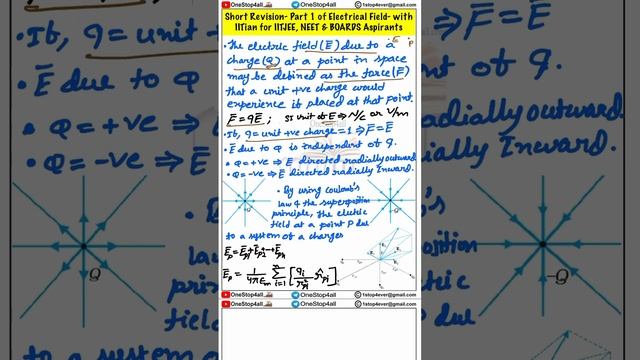 OneStop4all OneStop4all © 1stop4ever@gmail.com
Short Revision- Part 1 of Electrical Field- with
IITian for IITJEE, NEET & BOARDS Aspirants
• The electric field (Ē) due to a
charge (Q) at a point in space
may be defined as the force (F̄)
that a unit +ve charge would
experience if placed at that point.
F̄ = qĒ ; SI unit of E ⇒ N/C or V/m
• If, q = unit +ve charge = 1 ⇒ F̄ = Ē
• Ē due to Q is independent of q.
• Q = +ve ⇒ Ē directed radially outward
• Q = -ve ⇒ Ē directed radially Inward.
• By using Coulomb's
law & the superposition
principle, the electric
field at a point P due
to a system of n charges
Ēp = Ēp1 + Ēp2 + --- + Ēpn
Ēp = 1/4πEm Σ i=1 n [qi/r²pi r̂pi]
OneStop4all OneStop4all © 1stop4ever@gmail.com
• If, q = unit
Ē due to Q
• Q = +ve ⇒
• Q = -ve ⇒
Q
to a system
⇒ F̄ = Ē
nt of q.
radially outward
radially Inward.
omb's
position
electric
P due
-Q